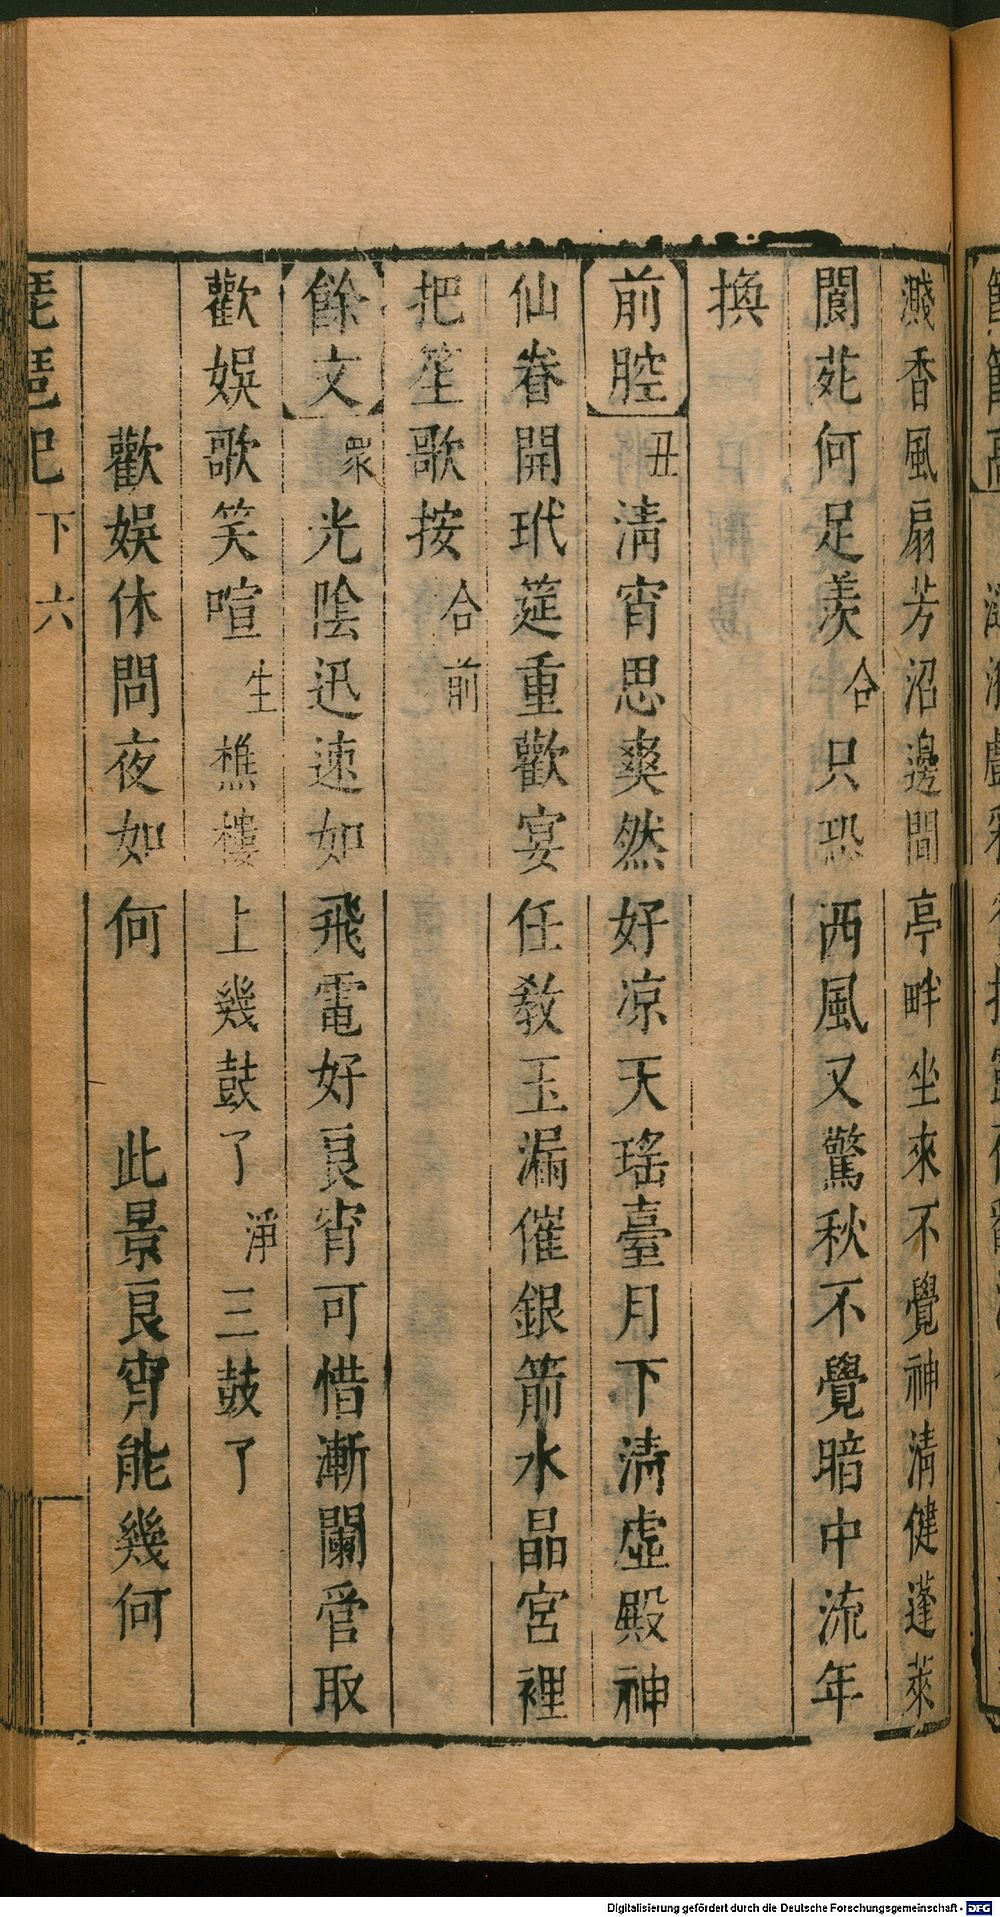 濺香風扇芳沼邊間亭畔坐來不覺神清健蓬萊
閬苑何足羨合只恐西風又驚秋不覺暗中流年
換
前腔丑清宵思爽然好凉天瑤臺月下清虛殿神
仙眷開玳筵重歡宴任教玉漏催銀箭水晶宮裡
把笙歌按合前
餘文衆光陰迅速如飛電好良宵可惜漸闌管取
歡娛歌笑喧生樵樓上幾鼓了淨三鼓了
歡娛休問夜如何 此景良宵能幾何
琵琶記 下 六
Digitalisierung gefördert durch die Deutsche Forschungsgemeinschaft - DFG